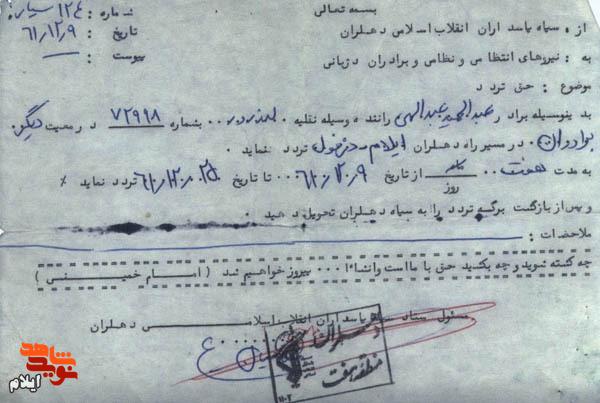 بسمه تعالی
شماره : ۱۲۴ سیار
از : سپاه پاسداران انقلاب اسلامی دهلران
تاریخ : ۶۱/۱۲/۹
به : نیروهای انتظامی و نظامی و برادران دژبانی
پیوست : —
موضوع : حق تردد
بدینوسیله برادر عبدالحمید عبدالهی راننده وسیله نقلیه لندرور بشماره ۷۲۹۹۸ در معیت دیگر
برادران در مسیر راه دهلران ایلام - دزفول تردد نماید
به مدت هفت روز از تاریخ ۶۱/۱۲/۹ تا تاریخ ۶۱/۱۲/۲۵ تردد نماید
و پس از بازگشت برگ تردد را به سپاه دهلران تحویل دهید
ملاحضات :
چه کشته شوید و چه بکشید حق با ما است و انشاءا... پیروز خواهیم شد ( امام خمینی )
مسئول ستاد سپاه پاسداران انقلاب اسلامی دهلران
دهلران
منطقه هفت
شاهد
نوید
ایلام